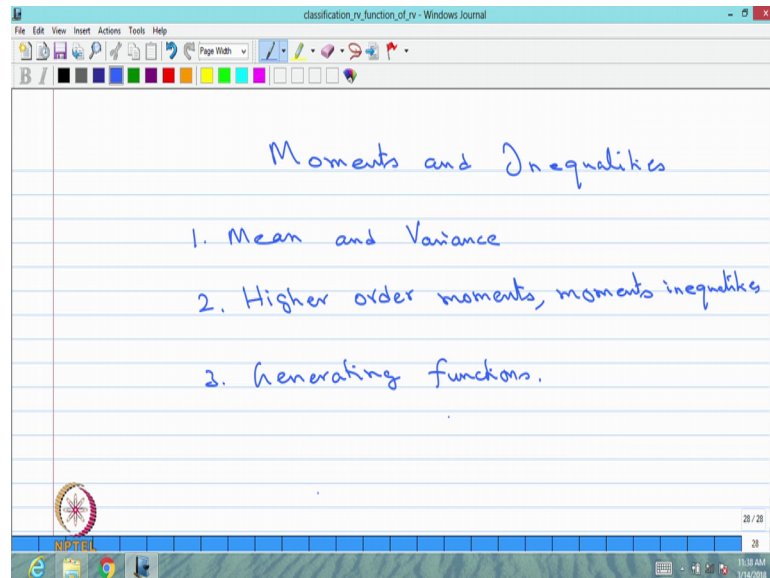 classification_rv_function_of_rv - Windows Journal
File Edit View Insert Actions Tools Help
Page Width
B I
Moments and Inequalities
1. Mean and Variance
2. Higher order moments, moments inequalities
3. Generating functions.
28 / 28
28
NPTEL
11:38 AM
1/14/2018